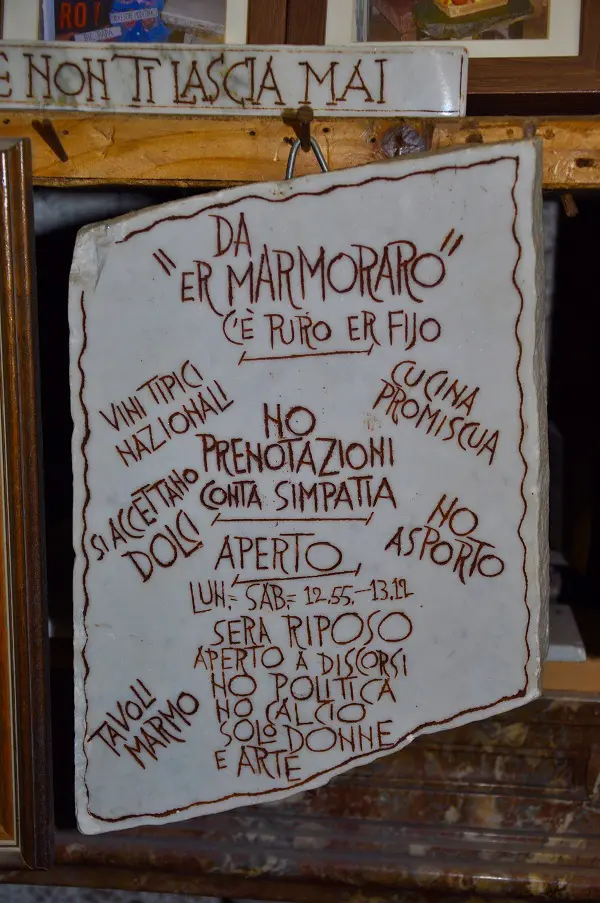 RO!
E NON TI LASCIA MAI
DA
"ER MARMORARO"
C'È PURO ER FIJO
VINI TIPICI
NAZIONALI
CUCINA
PROMISCUA
NO
PRENOTAZIONI
CONTA SIMPATIA
SI ACCETTANO
DOLCI
NO
ASPORTO
APERTO
LUN.= SAB.= 12.55.-13.12
SERA RIPOSO
APERTO A DISCORSI
NO POLITICA
NO CALCIO
SOLO DONNE
E ARTE
TAVOLI
MARMO